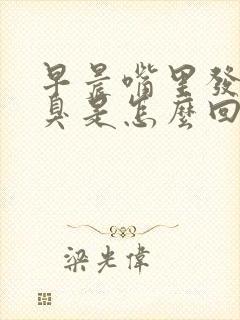 早晨嘴里發
臭是怎麽回
梁光偉